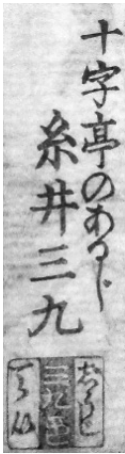 十字亭のあるじ
糸井三九